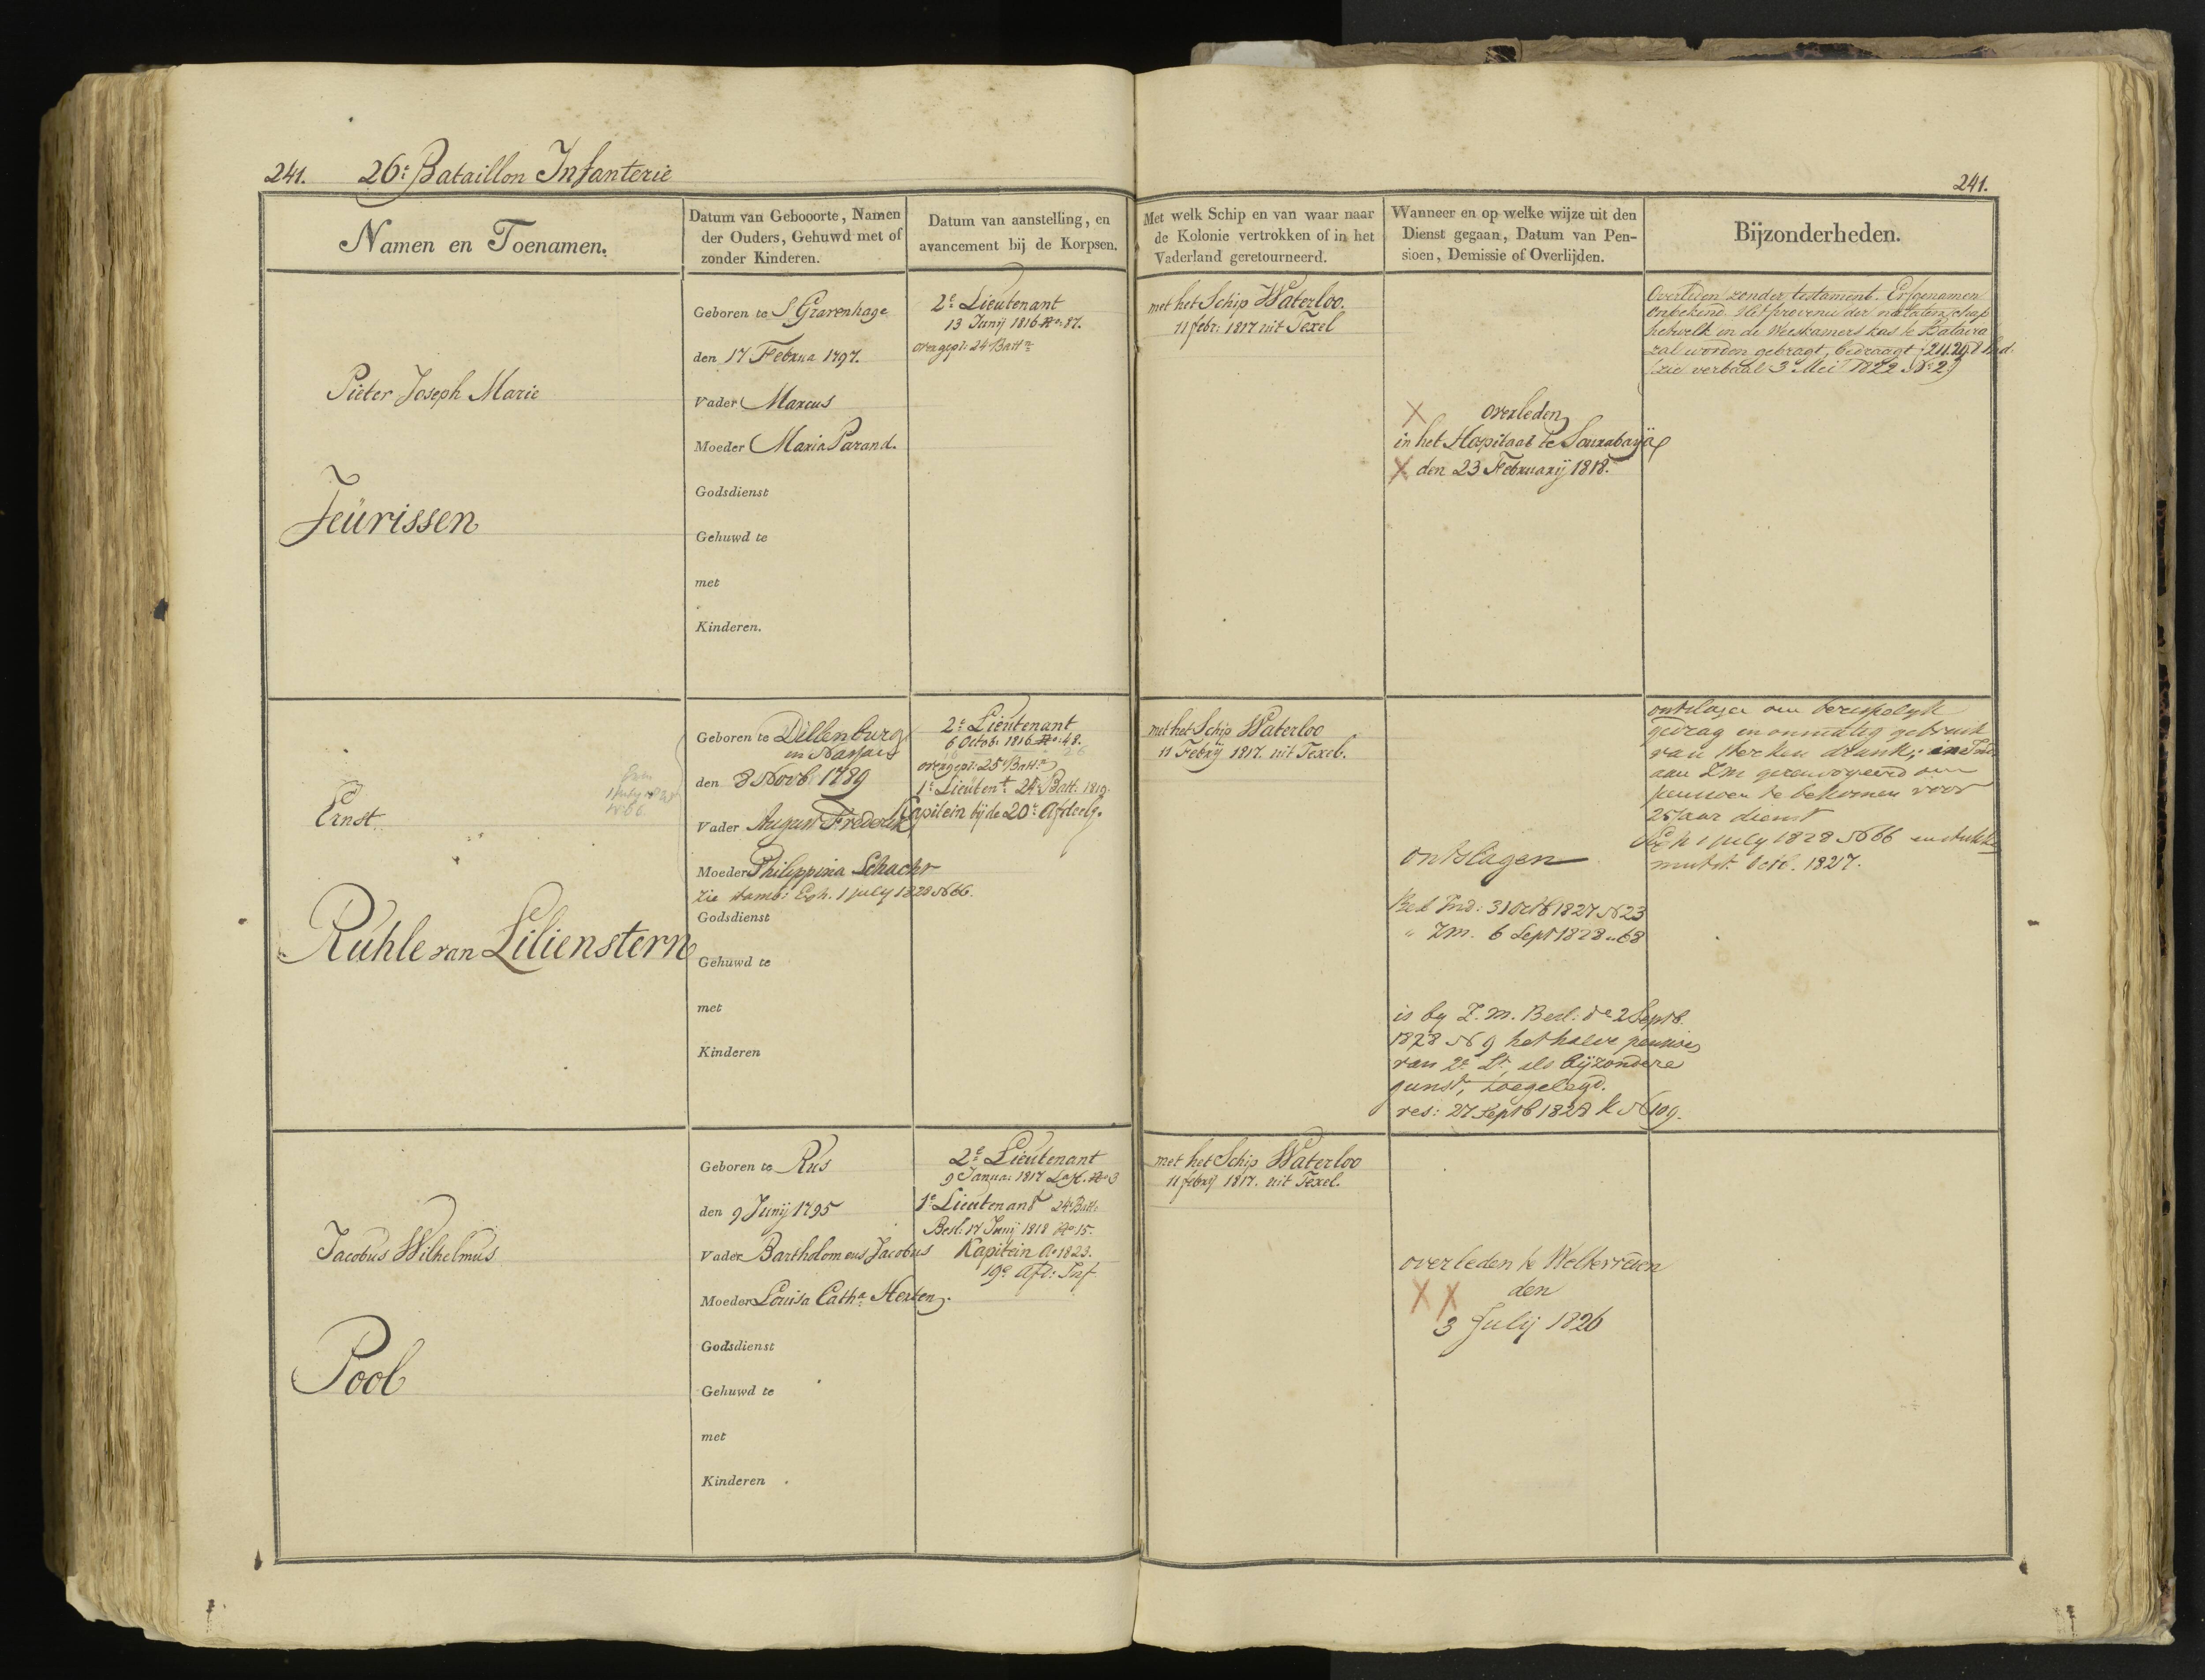 241. 26e Bataillon Infanterie
241.
Namen en Toenamen.
Datum van Gebooorte, Namen
der Ouders, Gehuwd met of
zonder Kinderen.
Datum van aanstelling, en
avancement bij de Korpsen.
Met welk Schip en van waar naar
de Kolonie vertrokken of in het
Vaderland geretourneerd.
Wanneer en op welke wijze uit den
Dienst gegaan, Datum van Pen-
sioen, Demissie of Overlijden.
Bijzonderheden.
Pieter Joseph Marie
Jeürissen
Geboren te S'Gravenhage
den 17 Februa 1797.
Vader Marcus
Moeder Maria Parand.
Godsdienst
Gehuwd te
met
Kinderen.
2e Lieutenant
13 Junij 1816 No 87.
overgepl: 24 Battn
met het Schip Waterloo.
11 febr: 1817 uit Texel
overleden
in het Hospitaal te Sourabaya
den 23 Februarij 1818.
Overleden zonder testament. Erfgenamen
onbekend. Het provenu der nalatenschap
hetwelk in de Weeskamers kas te Batavia
zal worden gebragt, bedraagt f 211.29.8 Ind.
(zie verbaal 3 Mei 1822 No 2)
Ernst
1 July 1828
No 66
Rühle van Lilienstern
Geboren te Dillenburg
in Nassau
den 8 Novb 1789
Vader August Frederik
Moeder Philippina Schacht
zie stamb: Exh. 1 July 1828 No 66.
Godsdienst
Gehuwd te
met
Kinderen
2e Lieutenant
6 Octob: 1816 No 48.
overgepl: 25e Battn
1e Lieutent 24e Batt: 1819.
Capitein bij de 20e Afdeelg.
met het Schip Waterloo
11 Febrij 1817. uit Texel.
ontslagen
Besl Ind: 31 Octb 1827 No 23
" Zm. 6 Sept 1828 " 68
is by Z.M. Besl: de 2 Septb.
1828 No 9 het halve pensioen
van 2e Lt, als bijzondere
gunst, toegelegd.
res: 27 Septb 1828 k No 109.
ontslagen om berispelyk
gedrag en onmatig gebruik
van sterken drank; in Ind
aan Zm gerenvoyeerd om
pensioen te bekomen voor
25 Jaar dienst
Exh 1 July 1828 No 66 en
mutst. Octb. 1827.
Jacobus Wilhelmus
Pool
Geboren te Rus
den 9 Junij 1795
Vader Bartholomeus Jacobus
Moeder Louisa Catha Herten.
Godsdienst
Gehuwd te
met
Kinderen
2e Lieutenant
9 Janua: 1817 La H. No 3
1e Lieutenant 24e Batt:
Besl: 17 Junij 1818 No 15.
Kapitein Ao 1823.
19e Afd: Inf
met het Schip Waterloo
11 febrij 1817. uit Texel.
overleden te Weltevreden
den
3 Julij 1826